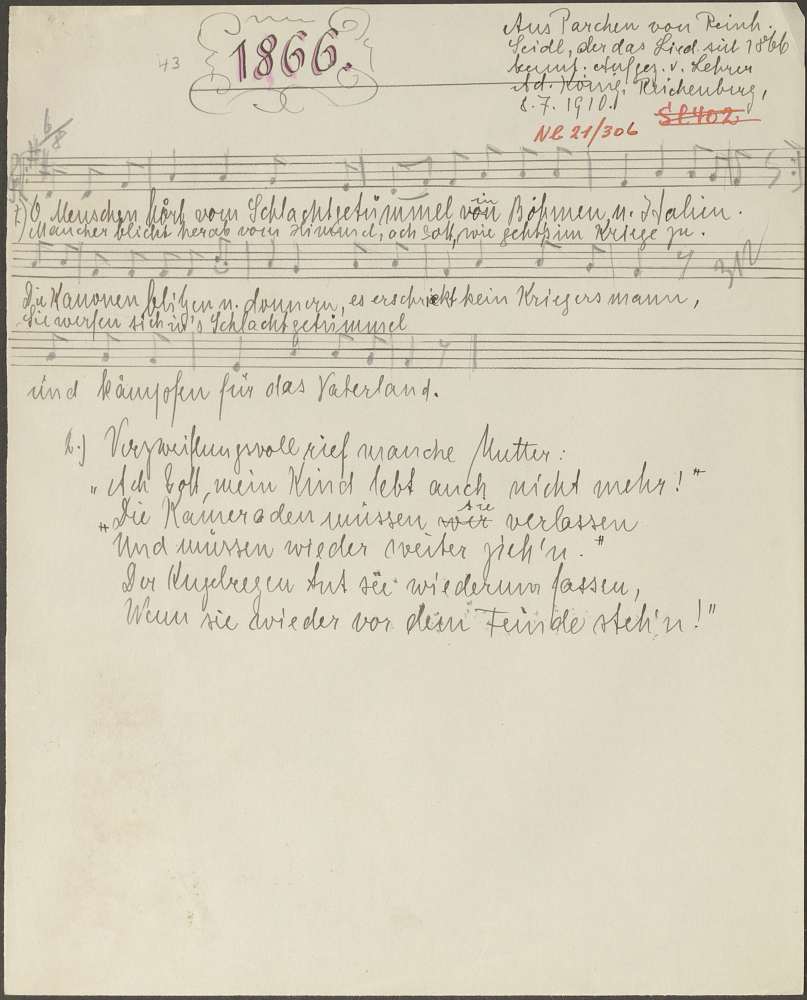 43
1866.
Aus Parchen von Reinh.
Seidl, der das Lied seit 1866
kennt. Aufgez. v. Lehrer
Ad. König, Reichenberg,
8. 7. 1910.
Nl 21/306 Sl 402
6/8
1.) O, Menschen hört vom Schlachtgetümmel von in Böhmen u. Italien.
Mancher blickt herab vom Himmel, ach Gott, wie gehts im Kriege zu.
Die Kanonen blitzen u. donnern, es erschrickt kein Kriegersmann,
Sie werfen sich in's Schlachtgetümmel
und kämpfen für das Vaterland.
2.) Verzweiflungsvoll rief manche Mutter:
„Ach Gott, mein Kind lebt auch nicht mehr!"
„Die Kameraden müssen wir sie verlassen
Und müssen wieder weiter zieh'n."
Der Kugelregen tut sie wiederum fassen,
Wenn sie wieder vor dem Feinde steh'n!"